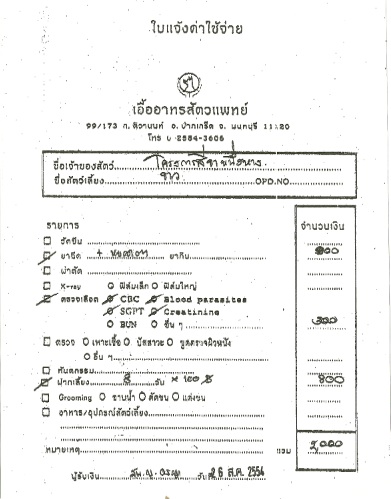 ใบแจ้งค่าใช้จ่าย
เอื้ออาทรสัตวแพทย์
99/173 ถ. ติวานนท์ อ. ปากเกร็ด จ. นนทบุรี 11120
โทร 0-2584-3605
ชื่อเจ้าของสัตว์
ชื่อสัตว์เลี้ยง ขาว OPD.NO.
รายการ จำนวนเงิน
วัคซีน
ยาฉีด + ยากิน 900
ผ่าตัด
X-ray ฟิล์มเล็ก ฟิล์มใหญ่
ตรวจเลือด CBC Blood parasites
SGPT Creatinine
BUN อื่น ๆ 300
ตรวจ เพาะเชื้อ ปัสสาวะ ขูดตรวจผิวหนัง
อื่น ๆ
ทันตกรรม
ฝากเลี้ยง 8 วัน × 100 ฿ 800
Grooming อาบน้ำ ตัดขน แต่งขน
อาหาร/อุปกรณ์สัตว์เลี้ยง
หมายเหตุ รวม 2,000
ผู้รับเงิน วันที่ 26 ส.ค. 2554